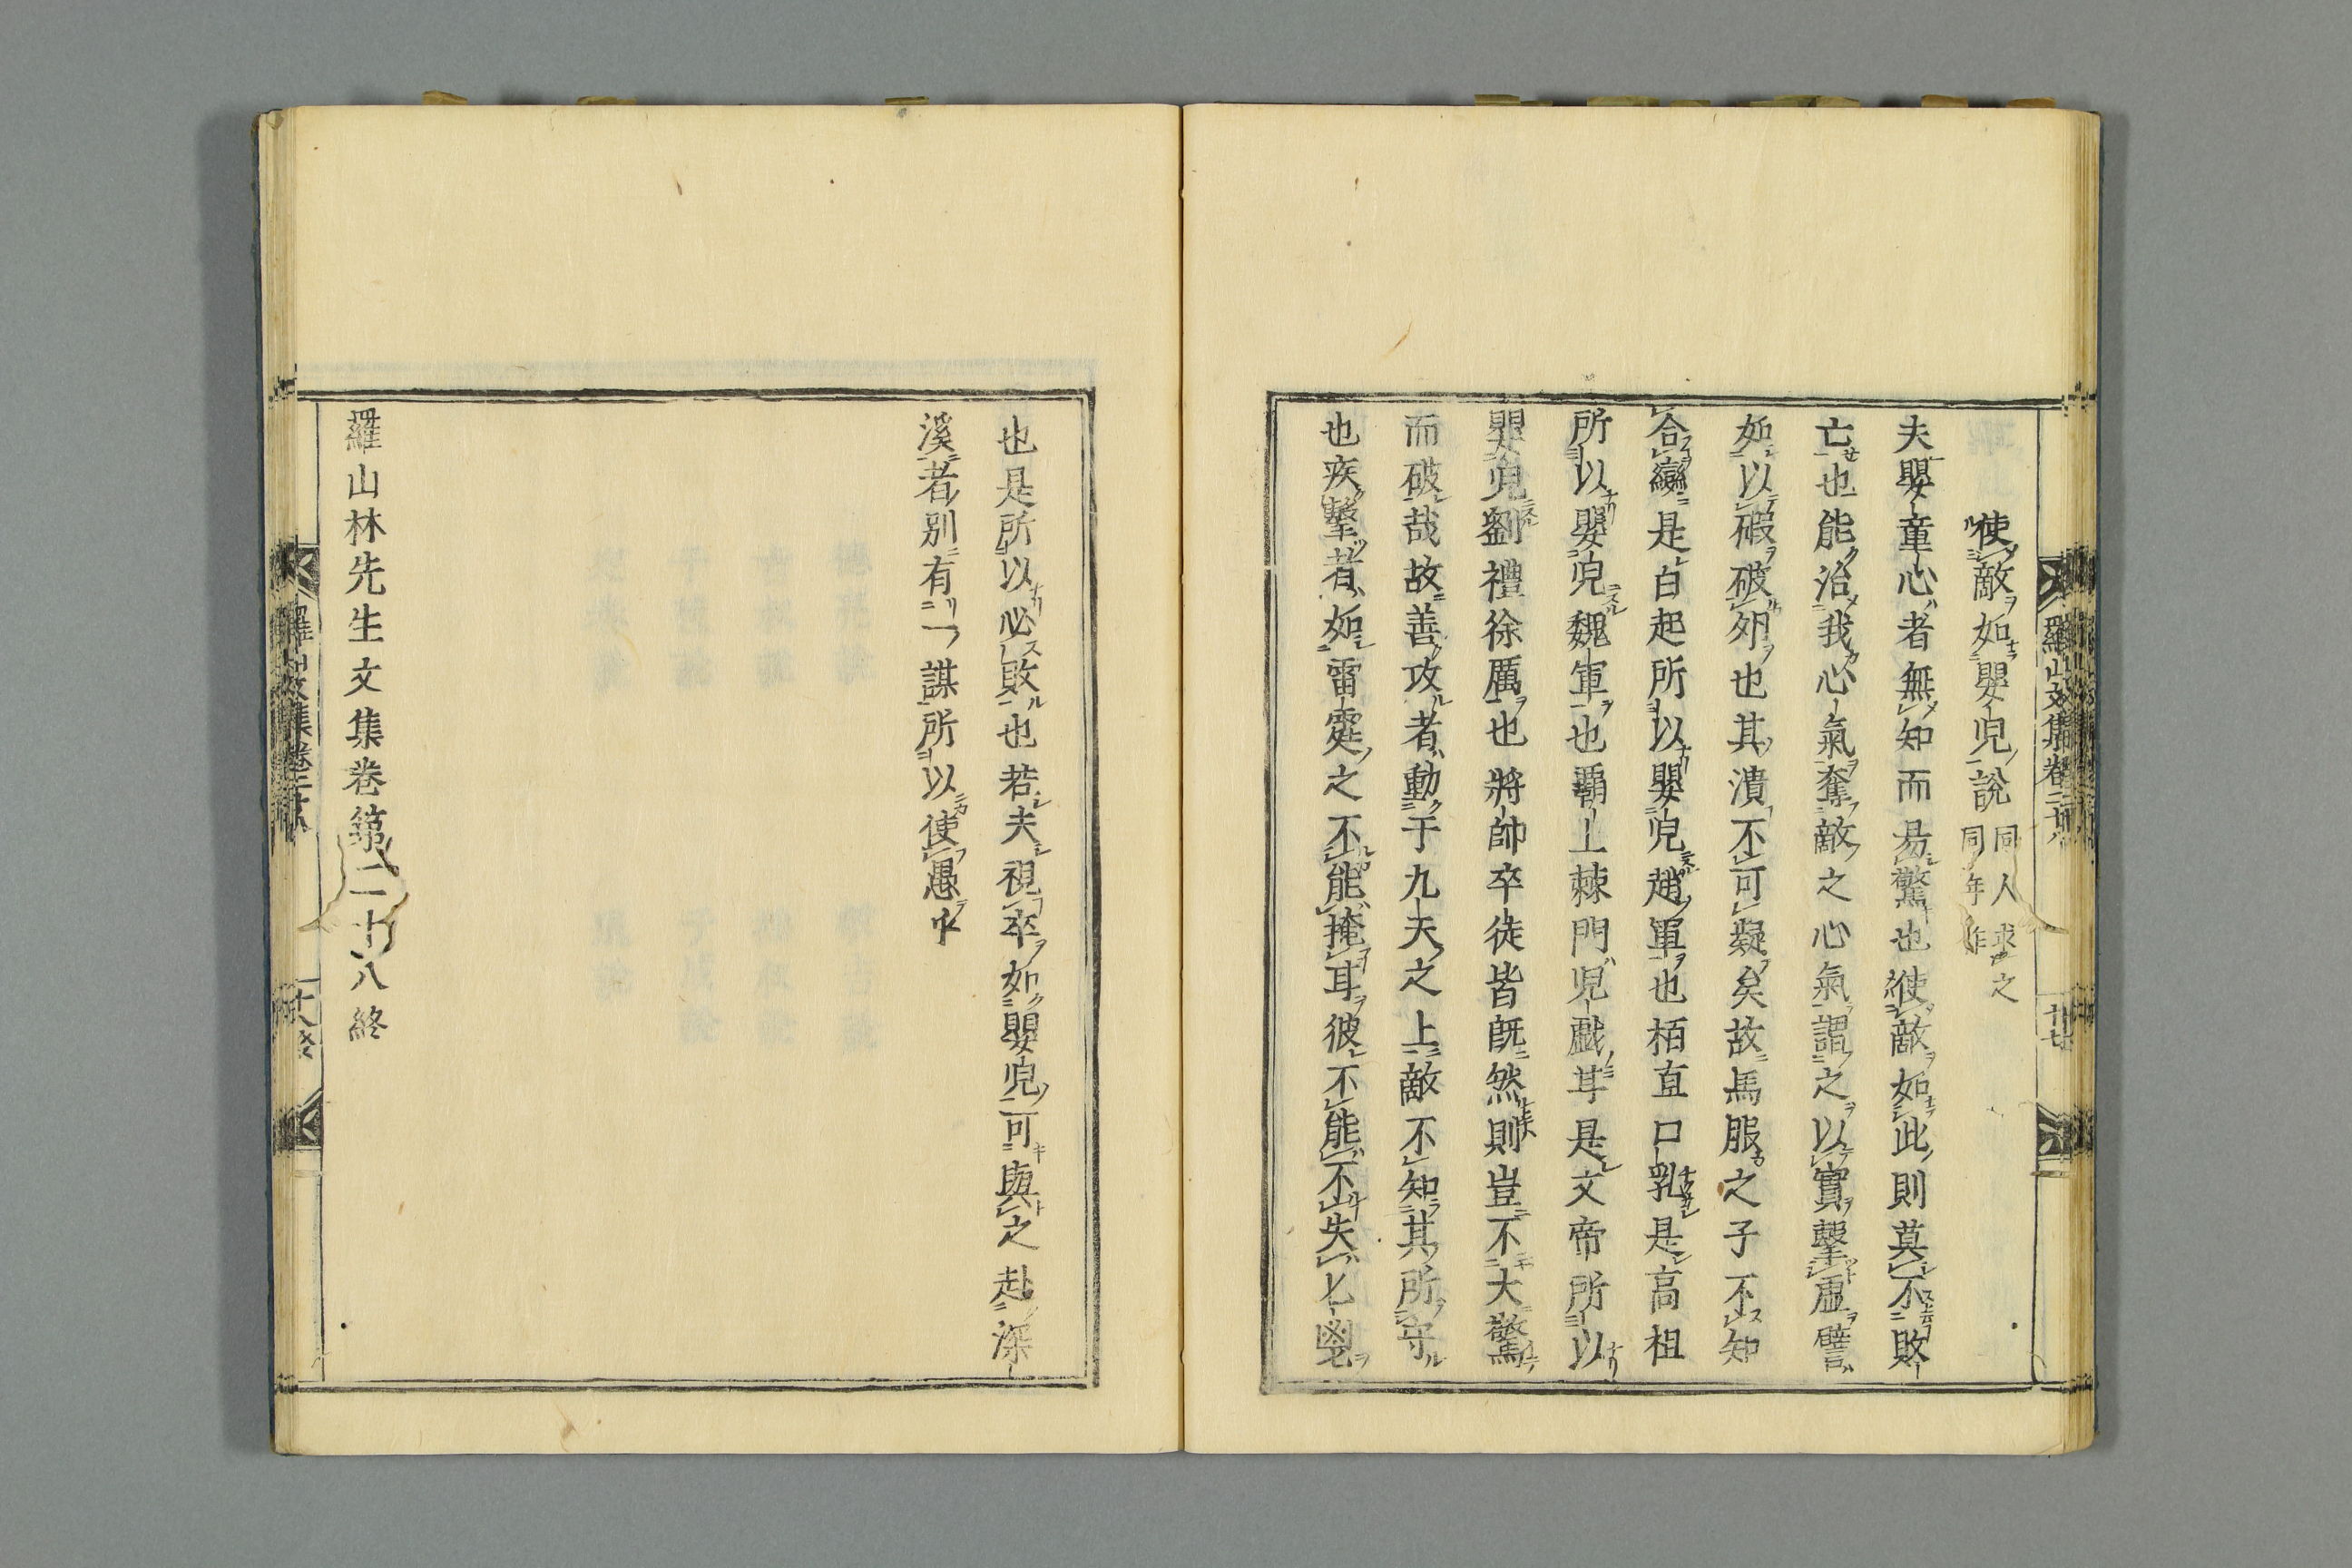 使敵如嬰兒說 同人求之 同年作
夫嬰童心者無知而易驚也使敵如此則莫不敗
亡也能治我心氣奪敵之心氣謂之以實擊虛譬
如以碬破卵也其潰不可疑矣故馬服之子不知
合變是白起所以嬰兒趙軍也栢直口乳是高祖
所以嬰兒魏軍也霸上棘門兒戲耳是文帝所以
嬰兒劉禮徐厲也將帥卒徒皆旣然則豈不大驚
而破哉故善攻者動于九天之上敵不知其所守
也疾擊者如雷霆之不能掩耳彼不能不失匕鬯
也是所以必敗也若夫視卒如嬰兒可與之赴深
溪者別有一謀所以使愚
羅山林先生文集卷第二十八終
羅山文集卷二十八
廿七